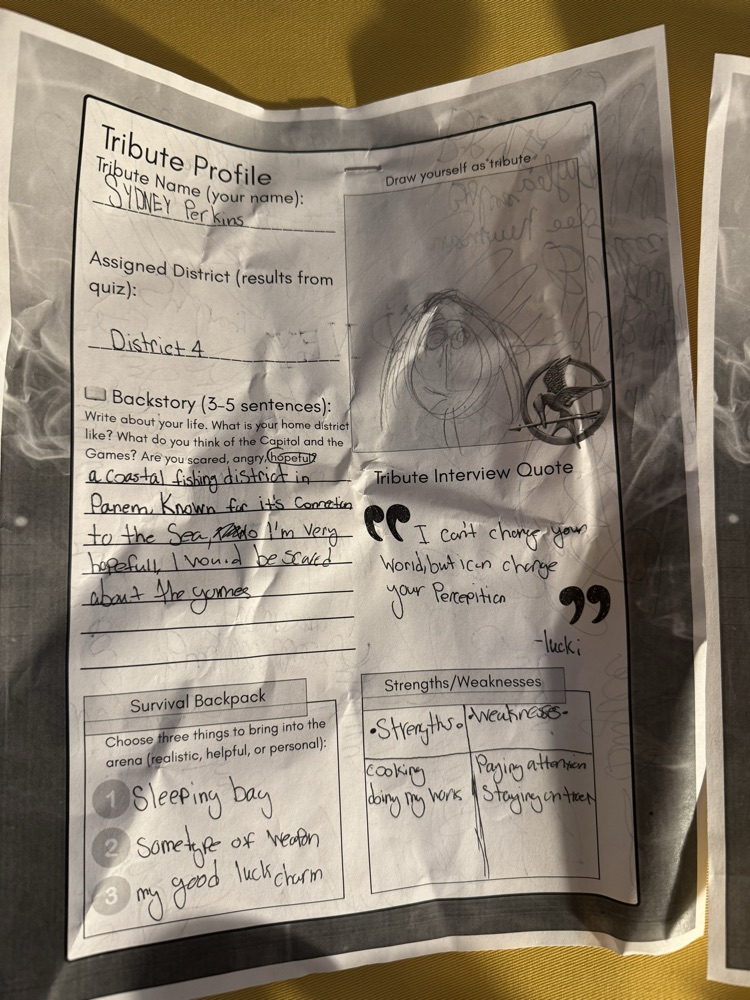 Tribute Profile
Tribute Name (your name):
SYDNEY Perkins
Assigned District (results from
quiz):
District 4
Backstory (3-5 sentences):
Write about your life. What is your home district
like? What do you think of the Capitol and the
Games? Are you scared, angry, hopeful?
a coastal fishing district in
Panem, Known for it's
to the Sea, I'm very
hopefull, I would be scared
about the games
Draw yourself as tribute
Tribute Interview Quote
I can't change your
World, but i can change
your Percepition
-lucki
Survival Backpack
Choose three things to bring into the
arena (realistic, helpful, or personal):
1 Sleeping bag
2 Sometype of weapon
3 my good luck charm
Strengths/Weaknesses
•Strengths• •Weaknesses•
cooking
doing my work
Paying attention
Staying on track